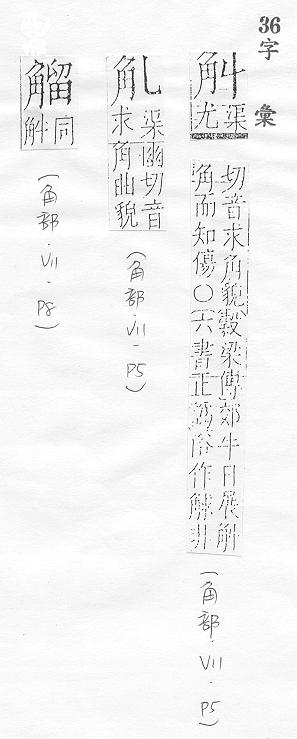 36
字彙
觓
渠
尤
切音求角貌穀梁傳郊牛日展觓
角而知傷○六書正譌俗作觩非
(角部.VII-P5)
渠幽切音
求角曲貌
(角部.VII-P5)
同
觓
(角部.VII-P8)